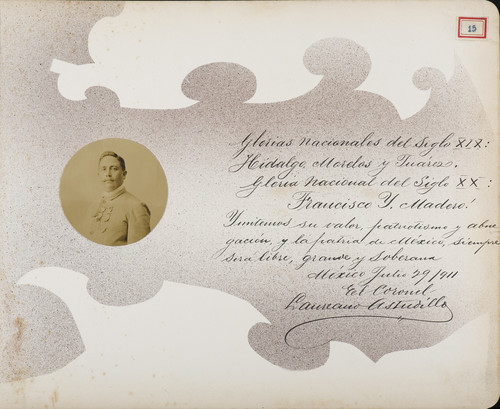 15
Glorias Nacionales del Siglo XIX:
Hidalgo, Morelos y Juárez.
Gloria Nacional del Siglo XX:
Francisco Y. Madero!
Ymitemos su valor, patriotismo y abne
gación, y la patria de México, siempre
será libre, grande y Soberana
México Julio 29/911
El Coronel
Laureano Astudillo